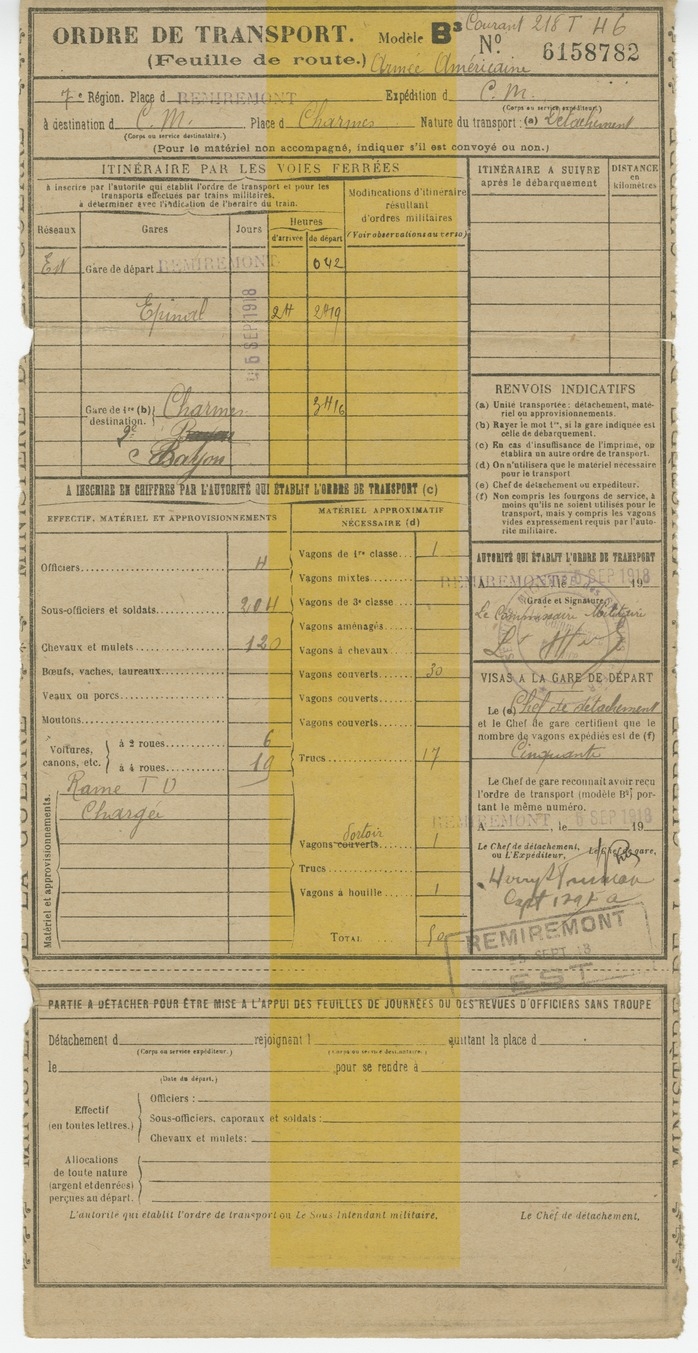 ORDRE DE TRANSPORT. Modèle B³ Courant 218 T 46
(Feuille de route.) Armée Américaine Nº 6158782
7e Région. Place d REMIREMONT Expédition d C. M.
(Corps ou service expéditeur.)
à destination d C. M. Place d Charmes Nature du transport : (a) Détachement
(Corps ou service destinataire.)
(Pour le matériel non accompagné, indiquer s'il est convoyé ou non.)
ITINÉRAIRE PAR LES VOIES FERRÉES
à inscrire par l'autorité qui établit l'ordre de transport et pour les
transports effectués par trains militaires,
à déterminer avec l'indication de l'horaire du train.
Modifications d'itinéraire
résultant
d'ordres militaires
(Voir observations au verso)
ITINÉRAIRE A SUIVRE
après le débarquement
DISTANCE
en
kilomètres
Réseaux Gares Jours Heures
d'arrivée de départ
Est Gare de départ REMIREMONT 042
Epinal 6 SEP 1918 2H 2H19
Gare de 1re (b) Charmes 3H16
destination.
2e Bayon
Bayon
RENVOIS INDICATIFS
(a) Unité transportée : détachement, maté-
riel ou approvisionnements.
(b) Rayer le mot 1re, si la gare indiquée est
celle de débarquement.
(c) En cas d'insuffisance de l'imprimé, on
établira un autre ordre de transport.
(d) On n'utilisera que le matériel nécessaire
pour le transport
(e) Chef de détachement ou expéditeur.
(f) Non compris les fourgons de service, à
moins qu'ils ne soient utilisés pour le
transport, mais y compris les vagons
vides expressement requis par l'auto-
rité militaire.
A INSCRIRE EN CHIFFRES PAR L'AUTORITÉ QUI ÉTABLIT L'ORDRE DE TRANSPORT (c)
EFFECTIF, MATÉRIEL ET APPROVISIONNEMENTS
MATÉRIEL APPROXIMATIF
NÉCESSAIRE (d)
Officiers 4
Sous-officiers et soldats 204
Chevaux et mulets 120
Bœufs, vaches, taureaux
Veaux ou porcs
Moutons
Voitures, canons, etc.
à 2 roues 6
à 4 roues 19
Rame T D
Chargée
Matériel et approvisionnements.
Vagons de 1re classe 1
Vagons mixtes
Vagons de 3e classe
Vagons aménagés
Vagons à chevaux
Vagons couverts 30
Vagons couverts
Vagons couverts
Trucs 17
Vagons couverts dortoir 1
Trucs
Vagons à houille 1
TOTAL 50
AUTORITÉ QUI ÉTABLIT L'ORDRE DE TRANSPORT
A REMIREMONT, le 6 SEP 1918 19
(Grade et Signature)
Le Commissaire Militaire
VISAS A LA GARE DE DÉPART
Le (e) Chef de détachement
et le Chef de gare certifient que le
nombre de vagons expédiés est de (f)
Cinquante
Le Chef de gare reconnaît avoir reçu
l'ordre de transport (modèle B³) por-
tant le même numéro.
A REMIREMONT, le 6 SEP 1918 19
Le Chef de détachement,
ou L'Expéditeur,
Le Chef de gare,
Harry S Truman
Capt 129 F A
REMIREMONT
SEPT 18
EST
PARTIE A DÉTACHER POUR ÊTRE MISE A L'APPUI DES FEUILLES DE JOURNÉES OU DES REVUES D'OFFICIERS SANS TROUPE
Détachement d rejoignant l quittant la place d
(Corps ou service expéditeur.) (Corps ou service destinataire.)
le pour se rendre à
(Date du départ.)
Effectif
(en toutes lettres.)
Officiers :
Sous-officiers, caporaux et soldats :
Chevaux et mulets:
Allocations
de toute nature
(argent et denrées)
perçues au départ.
L'autorité qui établit l'ordre de transport ou Le Sous Intendant militaire. Le Chef de détachement.